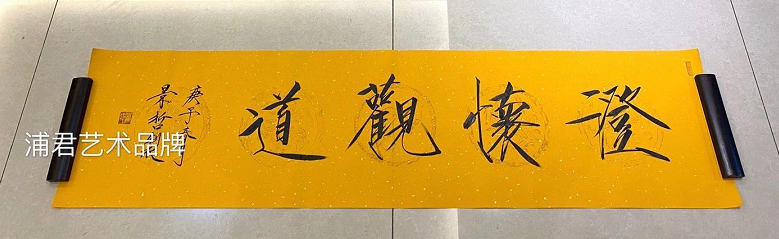 澄懷觀道
庚子春月
景哲
浦君艺术品牌